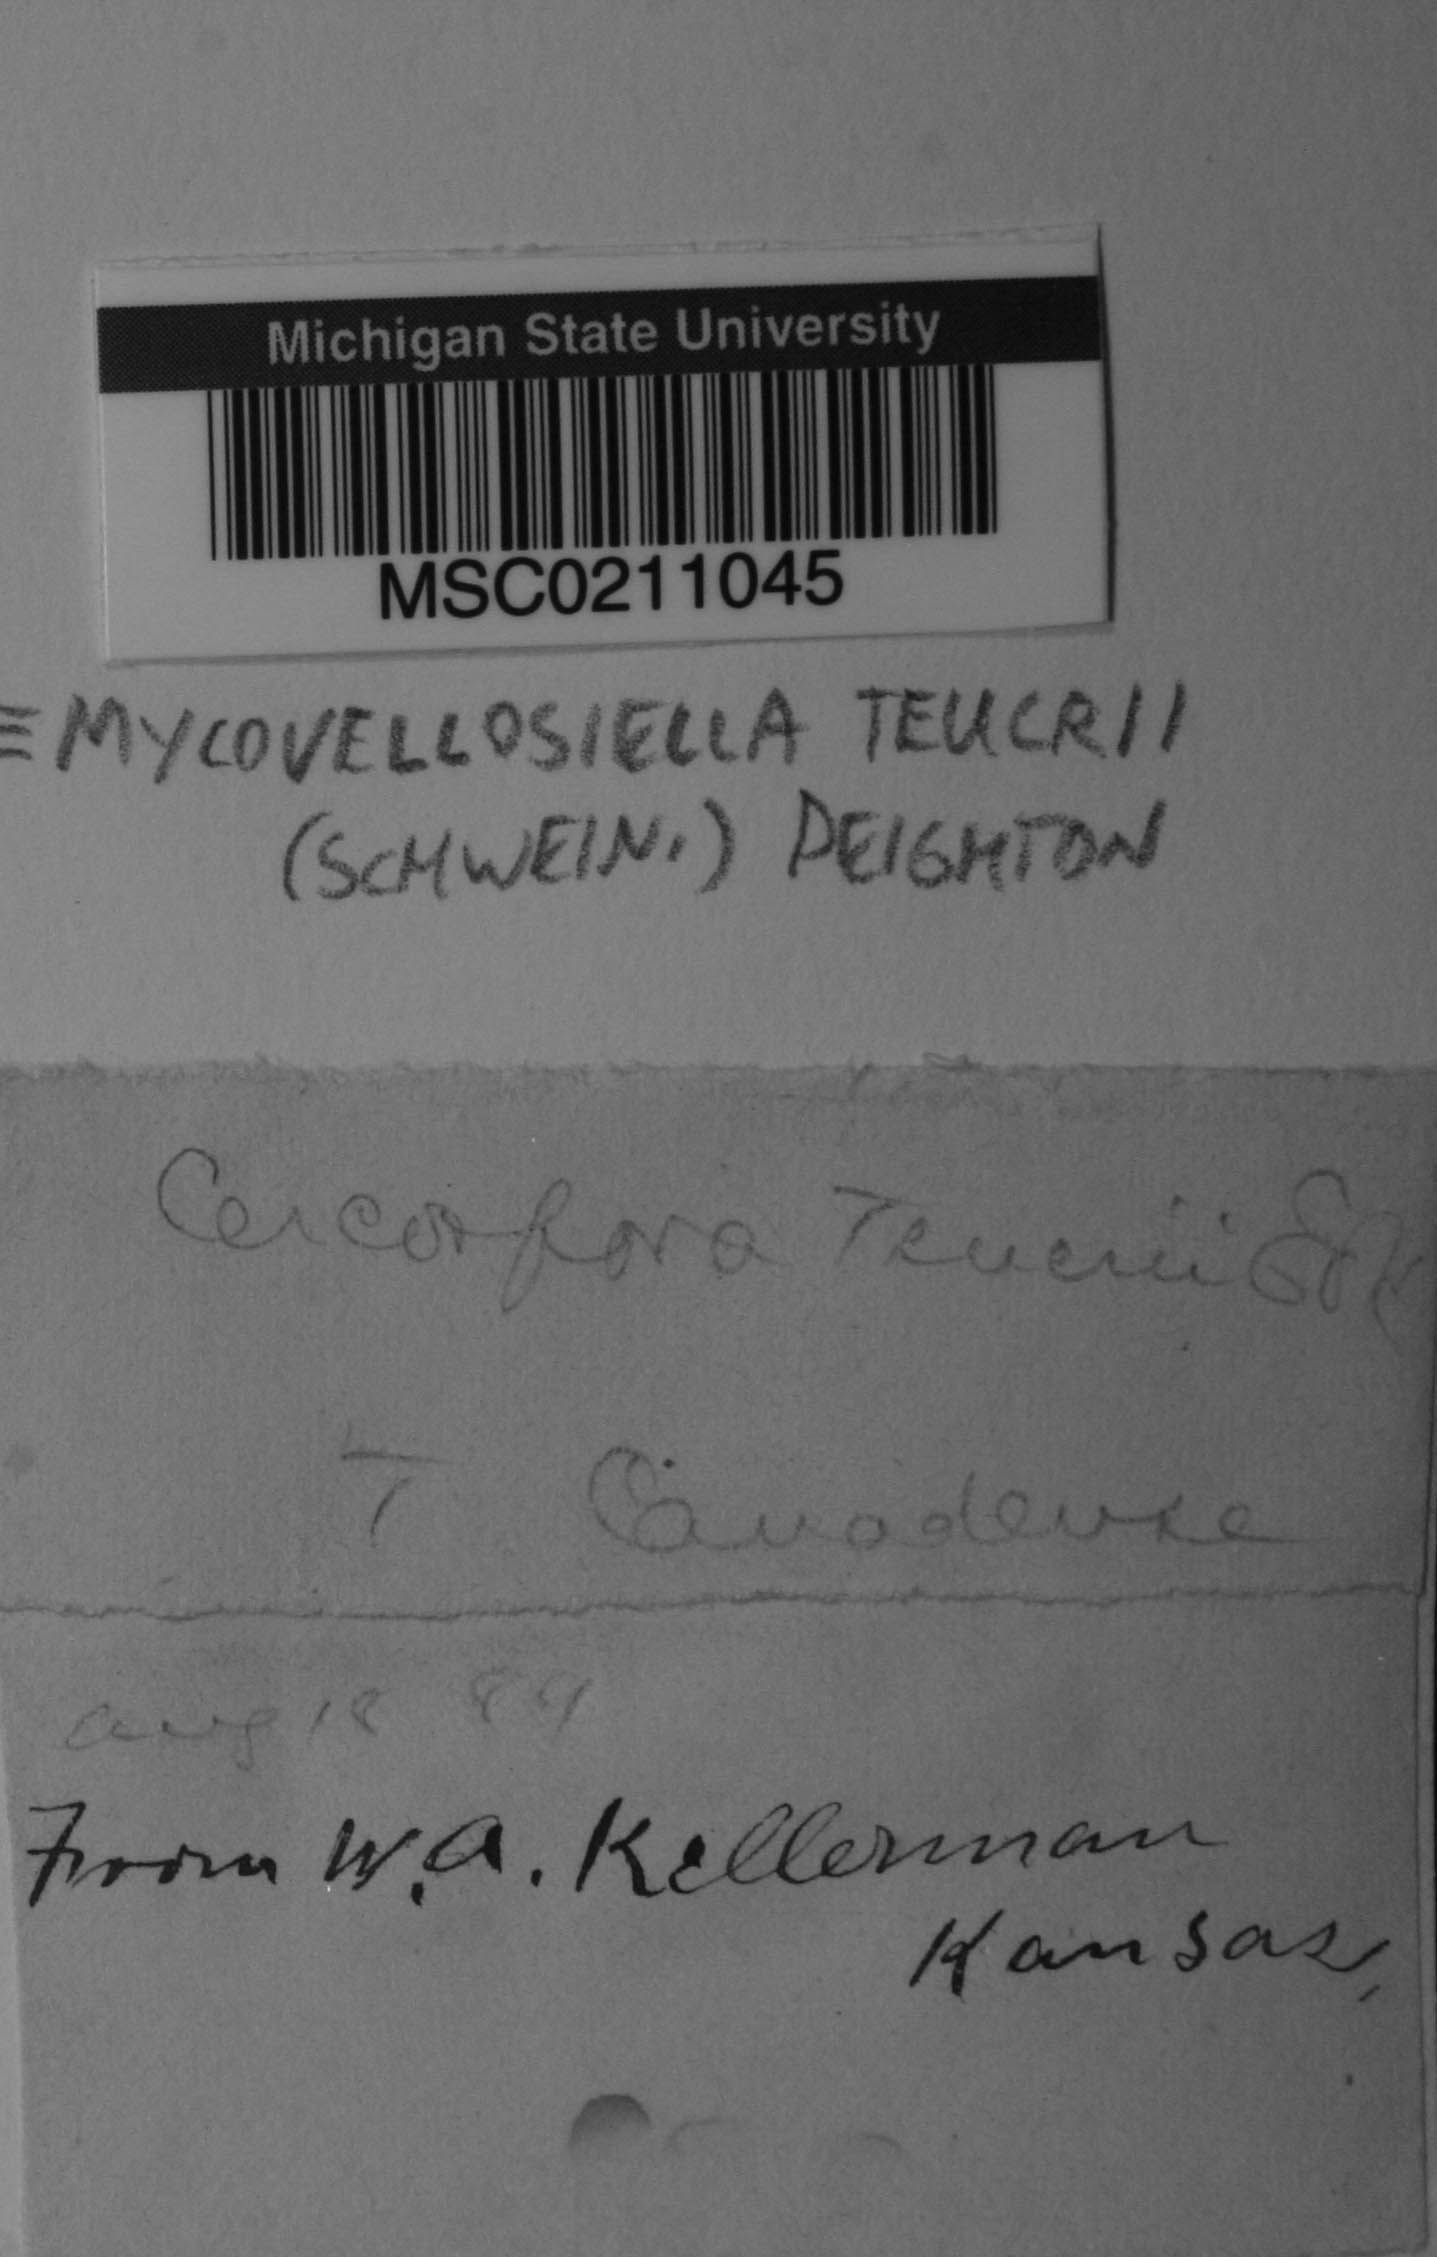 Michigan State University
MSC0211045
≡ MYCOVELLOSIELLA TEUCRII
(SCHWEIN.) DEIGHTON
Cercospora Teucrii
T Canadense
Aug 18 84
From W. A. Kellerman
Kansas,